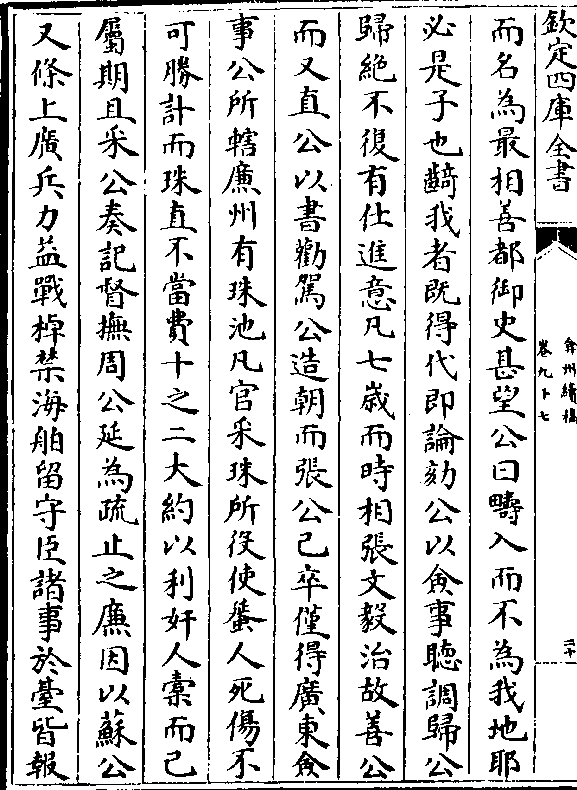 欽定四庫全書
弇州續稿
卷九十七
二十一
而名為最相善都御史甚望公曰疇入而不為我地耶
必是子也齮我者既得代即論劾公以僉事聽調歸公
歸絶不復有仕進意凡七歲而時相張文毅治故善公
而又直公以書勸駕公造朝而張公已卒僅得廣東僉
事公所轄廉州有珠池凡官采珠所役使蜑人死傷不
可勝計而珠直不當費十之二大約以利奸人橐而已
屬期且采公奏記督撫周公延為疏止之廉因以蘇公
又條上廣兵力益戰棹禁海舶留守臣諸事於臺皆報